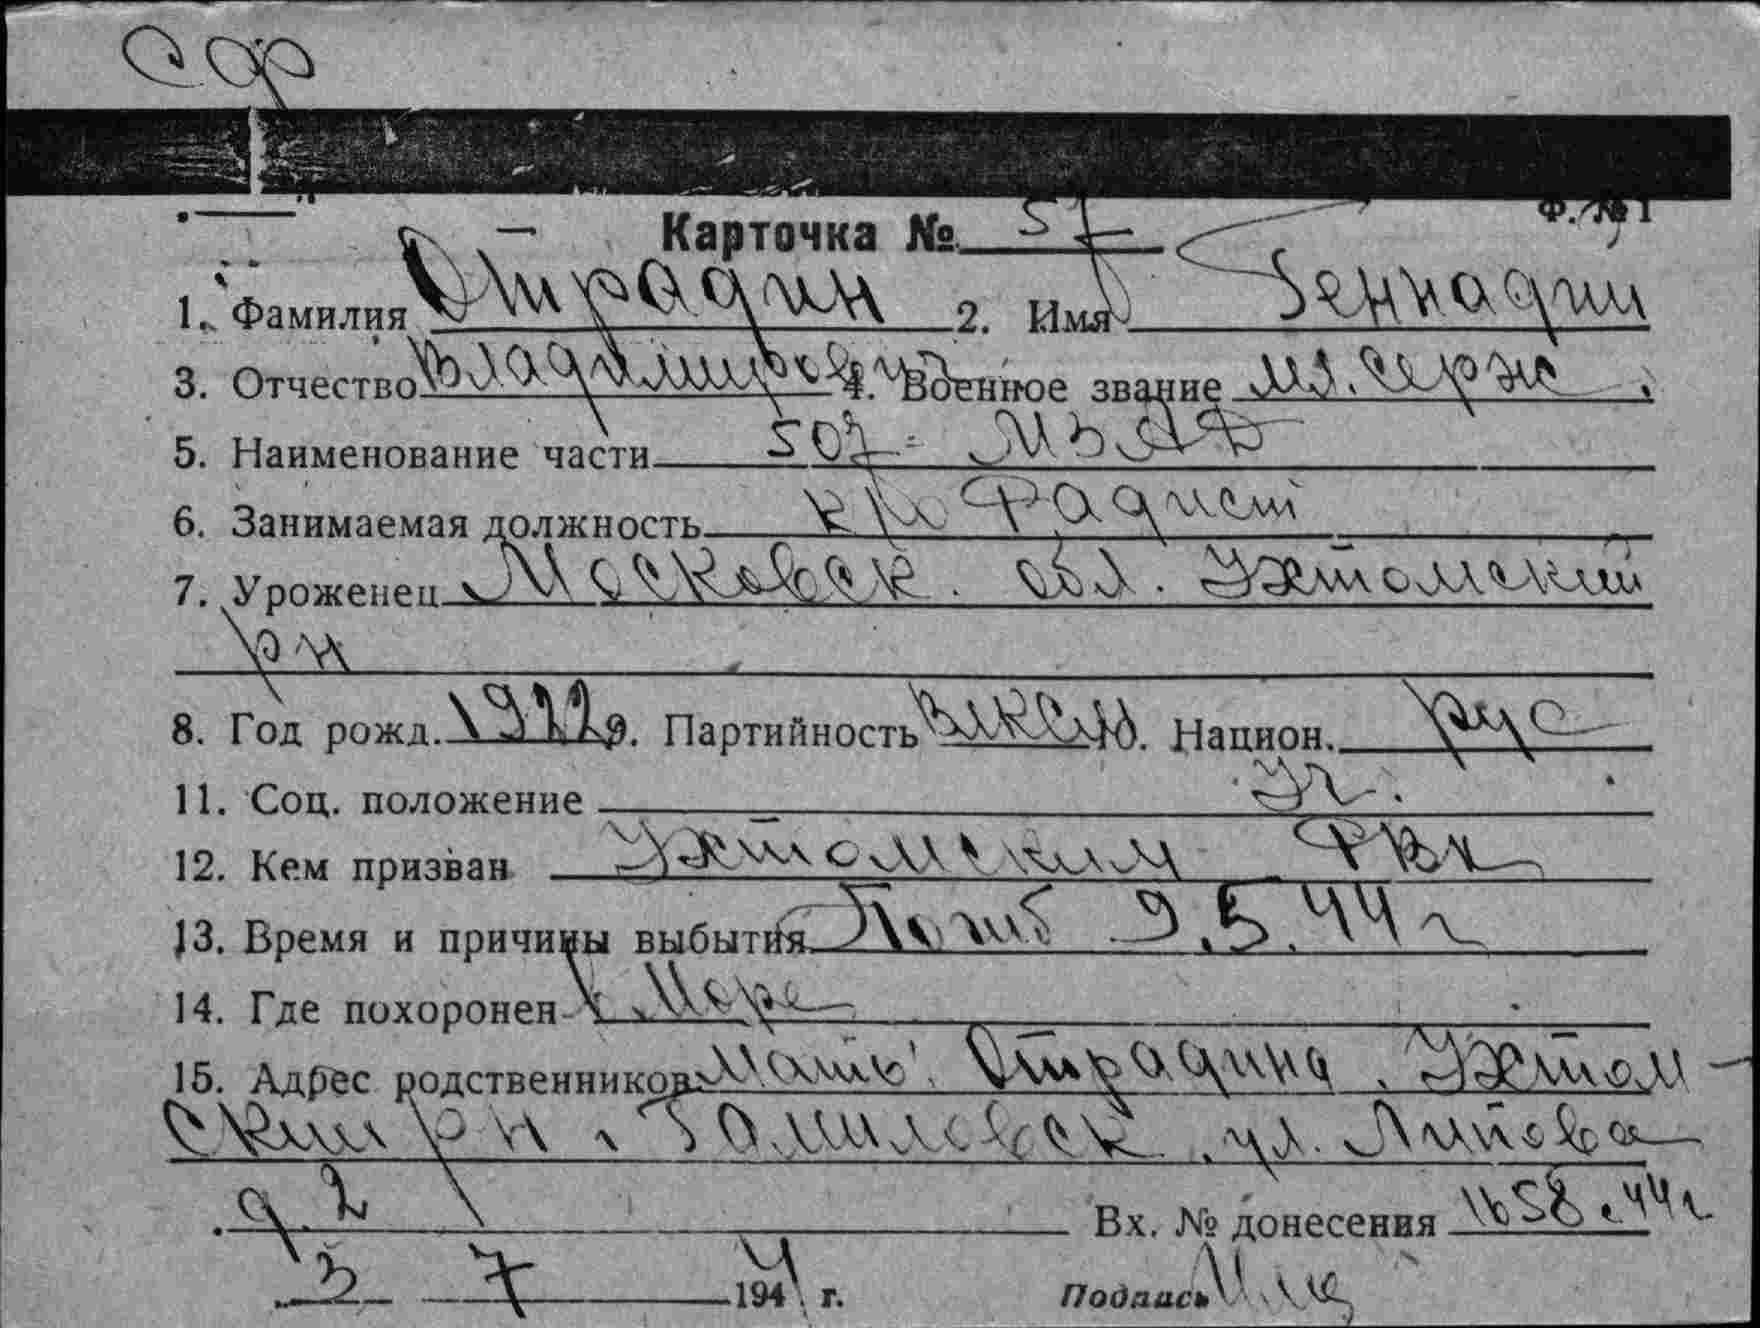 Карточка № 57
Ф. № 1
1. Фамилия Отрадин 2. Имя Геннадий
3. Отчество Владимиров. 4. Военное звание мл. серж.
5. Наименование части 507 -
6. Занимаемая должность радист
7. Уроженец Московск. обл. Ухтомский
р-н
8. Год рожд. 1922 9. Партийность влксм 10. Национ. рус
11. Соц. положение уч.
12. Кем призван Ухтомским РВК
13. Время и причины выбытия Погиб 9.5.44 г
14. Где похоронен в Море
15. Адрес родственников мать Отрадина, Ухтом-
ский р-н, Томилинск, ул. Литов
д. 2
Вх. № донесения
3 7 1944 г. Подпись